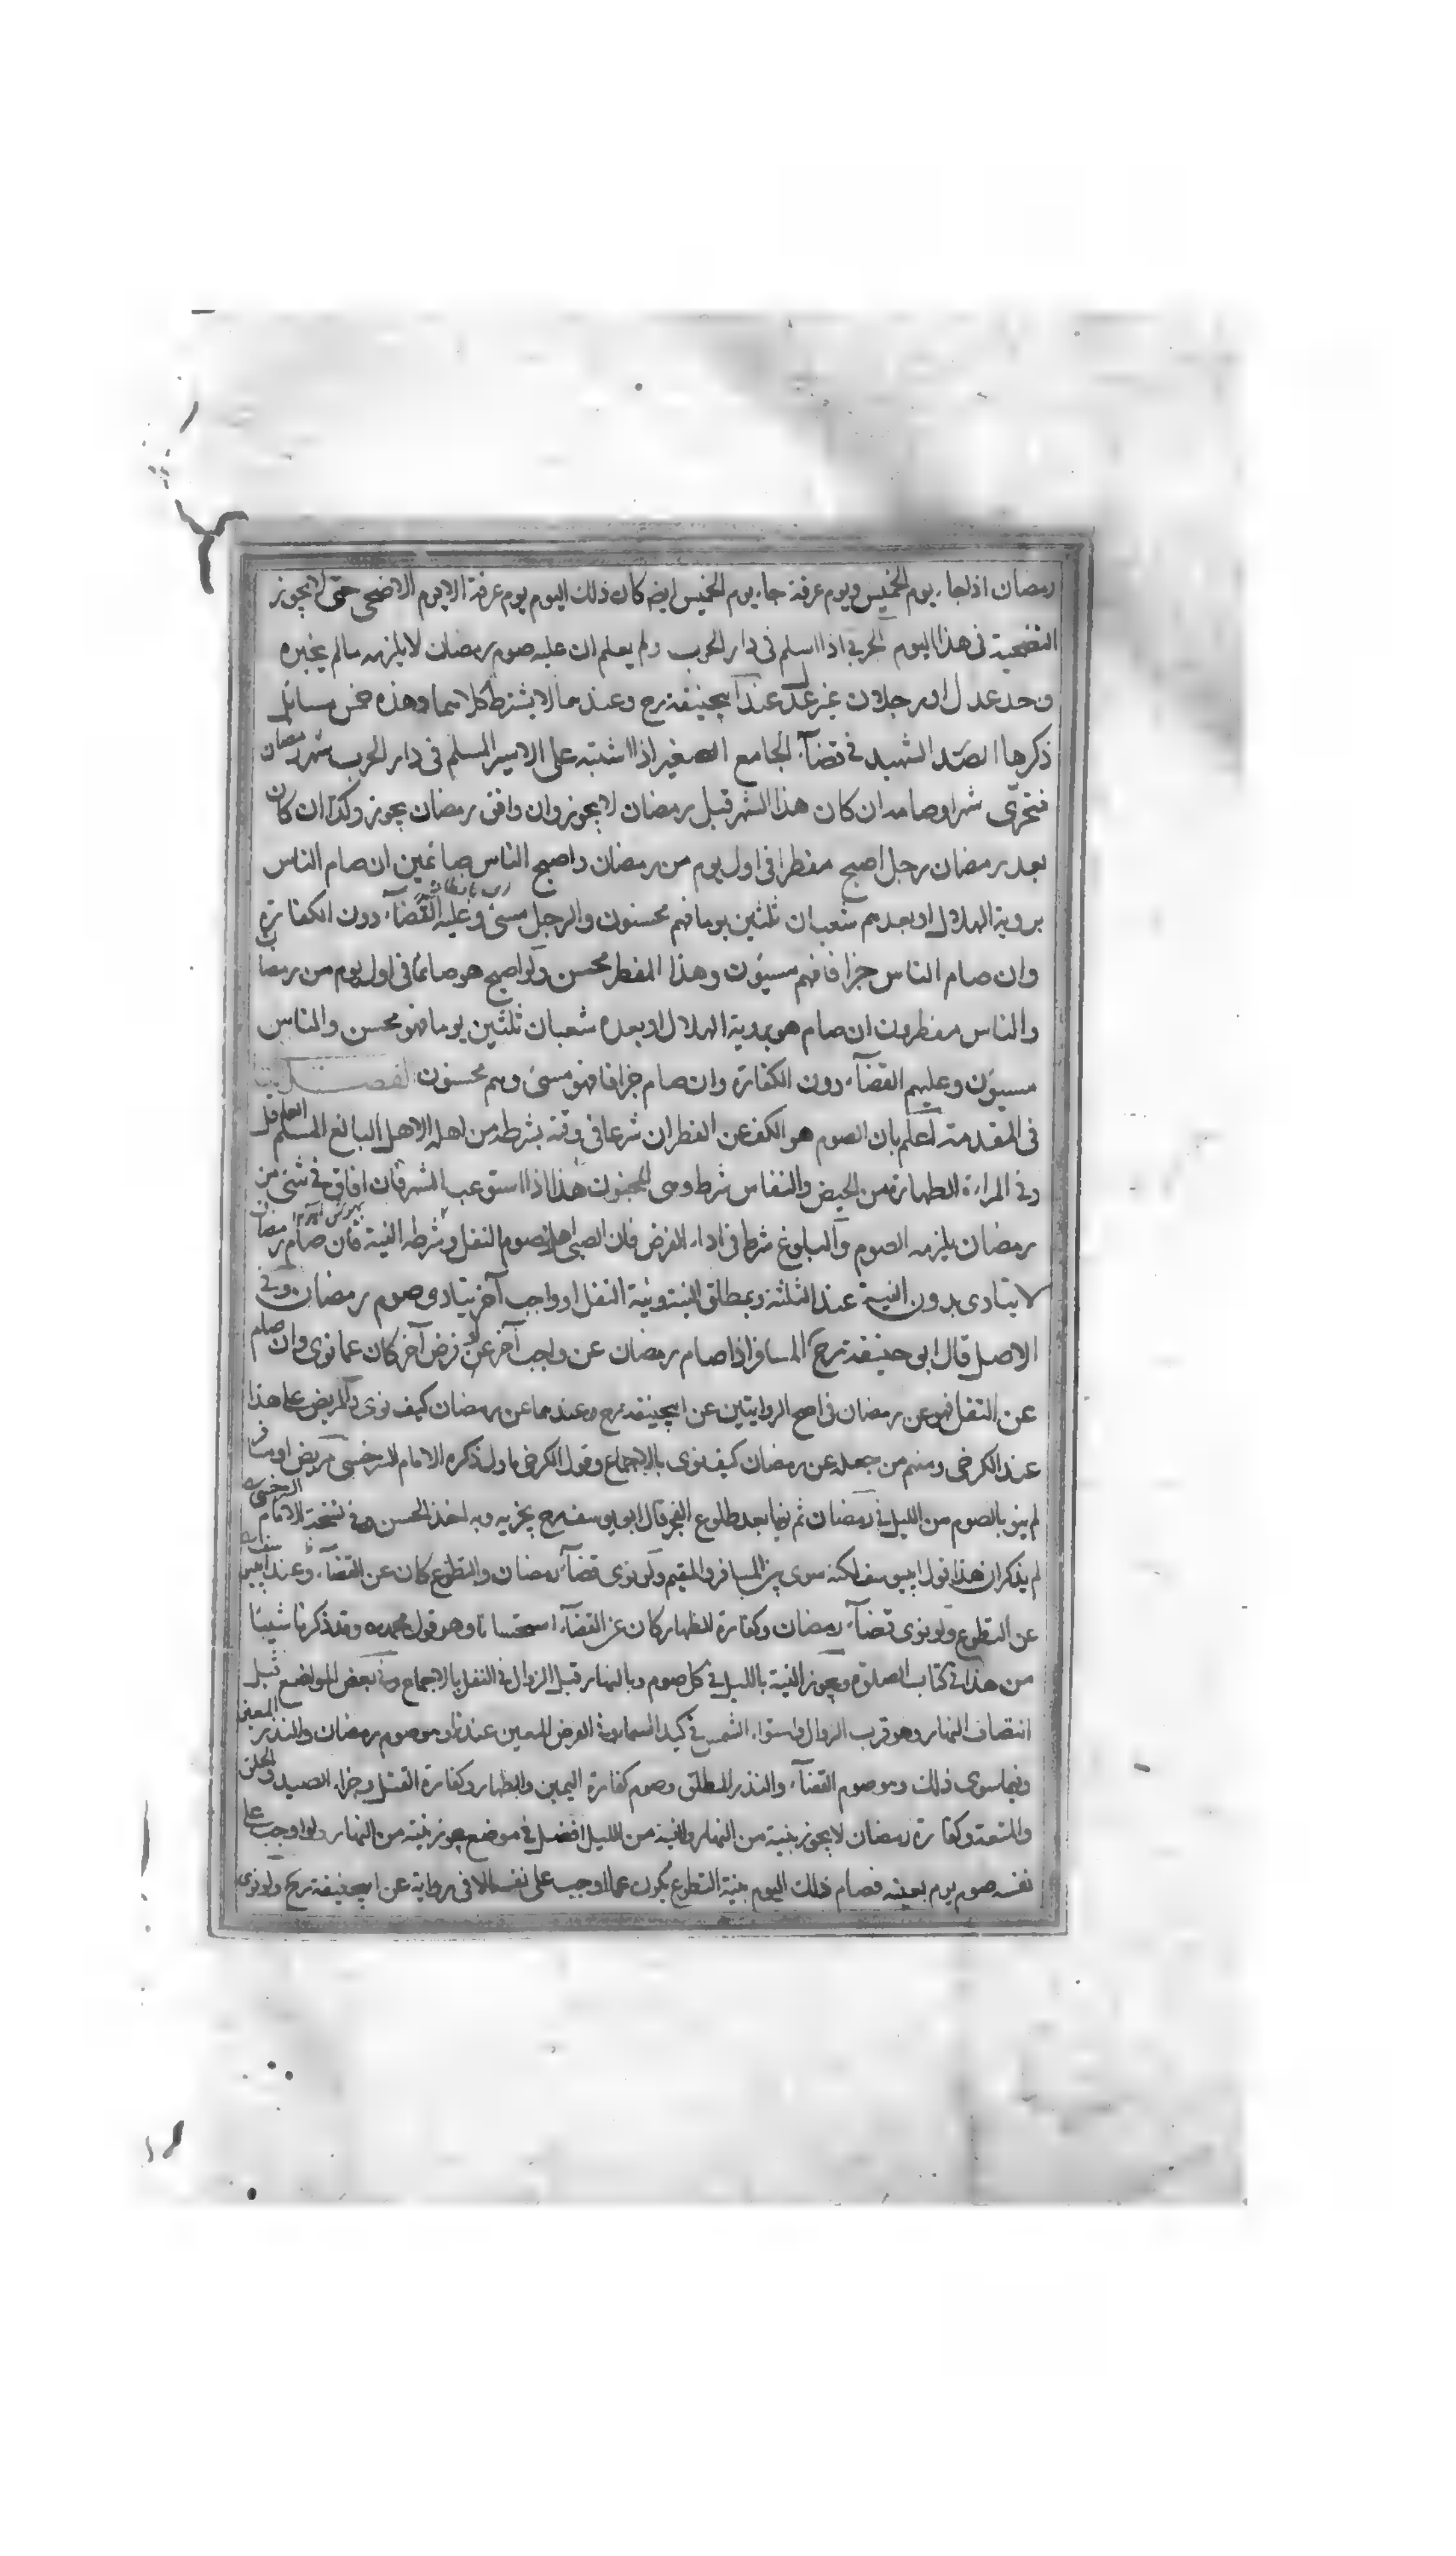 رمضان اذا جاء يوم الخميس ويوم عرفة جاء يوم الخميس ايضا كان ذلك اليوم يوم عرفة لا يوم الاضحى حتى لا يجوز
التضحية فى هذا اليوم الحربى اذا اسلم فى دار الحرب ولم يعلم ان عليه صوم رمضان لا يلزمه ما لم يخبره
وحد عدل او رجلان غير عدل عند ابيحنيفة رح وعندهما لا يشترط كلاهما وهذه خمس مسائل
ذكرها الصدر الشهيد فى قضاء الجامع الصغير اذا اشتبه على الاسير المسلم فى دار الحرب شهر رمضان
فتحرّى شهرا وصامه ان كان هذا الشهر قبل رمضان لا يجوز وان وافق رمضان يجوز وكذا ان كان
بعد رمضان رجل اصبح مفطرا فى اول يوم من رمضان واصبح الناس صائمين ان صام الناس
بروية الهلال او بعدهم شعبان ثلثين يوما فهم محسنون والرجل مسئ وعليه القضآء دون الكفارة
وان صام الناس جزافا فهم مسيؤن وهذا المفطر محسن ولو اصبح هو صائما فى اول يوم من رمضان
والناس مفطرون ان صام هو بروية الهلال او بعده شعبان ثلثين يوما فهو محسن والناس
مسيؤن وعليهم القضآء دون الكفارة وان صام جزافا فهو مسئ وهم محسنون الفصل
فى المقدمة اعلم بان الصوم هو الكف عن الفطران شرعا فى وقته بشرطه من اهله الاهل البالغ المسلم العاقل
وفى المراءة الطهارة من الحيض والنفاس شرط وهى المجنون هذا اذا استوعب الشهر فان افاق فى شئ من
رمضان يلزمه الصوم والبلوغ شرط فى اداء الفرض فان الصبى اهل لصوم النفل وشرطه النية فان صام رمضان
لا يتادى بدون النية عند الثلثة وبمطلق النية ونية النفل او واجب آخر يتادى صوم رمضان وفى
الاصل قال ابى حنيفة رح المسافر اذا صام رمضان عن واجب آخر عن فرض آخر كان عما نوى وان صام
عن النفل فهو عن رمضان فى اصح الروايتين عن ابيحنيفة رح وعندهما عن رمضان كيف نوى والمريض على هذا
عند الكرخى ومنهم من جعله عن رمضان كيف نوى بالاجماع وقول الكرخى ماول ذكره الامام السرخسى مريض او مسافر
لم ينو بالصوم من الليل فى رمضان ثم نويا بعد طلوع الفجر قال ابو يوسف رح يجزيه وبه اخذ الحسن وفى نسخة الامام السرخسى
لم يذكر ان هذا قول ابيوسف لكنه سوى بين المسافر والمقيم ولو نوى قضآء رمضان والتطوع كان عن القضآء وعند
عن التطوع ولو نوى قضآء رمضان وكفارة الظهار كان عن القضآء استحسانا وهو قول محمد وقد ذكرنا شيئا
من هذا فى كتاب الصلوة ويجوز النية بالليل فى كل صوم وبالنهار قبل الزوال فى النفل بالاجماع وفى بعض المواضع قبل
انتصاف النهار وهو قرب الزوال واستواء الشمس فى كبد السماء وفى الفرض المعين عندنا وهو صوم رمضان والنذر المعين
وفيما سوى ذلك وهو صوم القضآء والنذر المطلق وصوم كفارة اليمين والظهار وكفارة القتل وجزاء الصيد والحلق
والمتعة وكفارة رمضان لا يجوز بنية من النهار والنية من الليل افضل فى موضع يجوز بنية من النهار ولو اوجب على
نفسه صوم يوم بعينه فصام ذلك اليوم بنية التطوع يكون عما اوجب على نفسه الا فى رواية عن ابيحنيفة رح ولو نوى